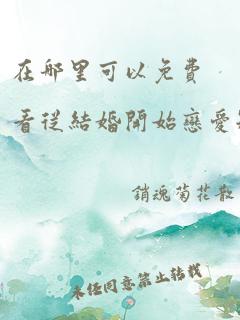 在哪里可以免費
看從結婚開始戀愛
銷魂菊花散
未经同意禁止转载